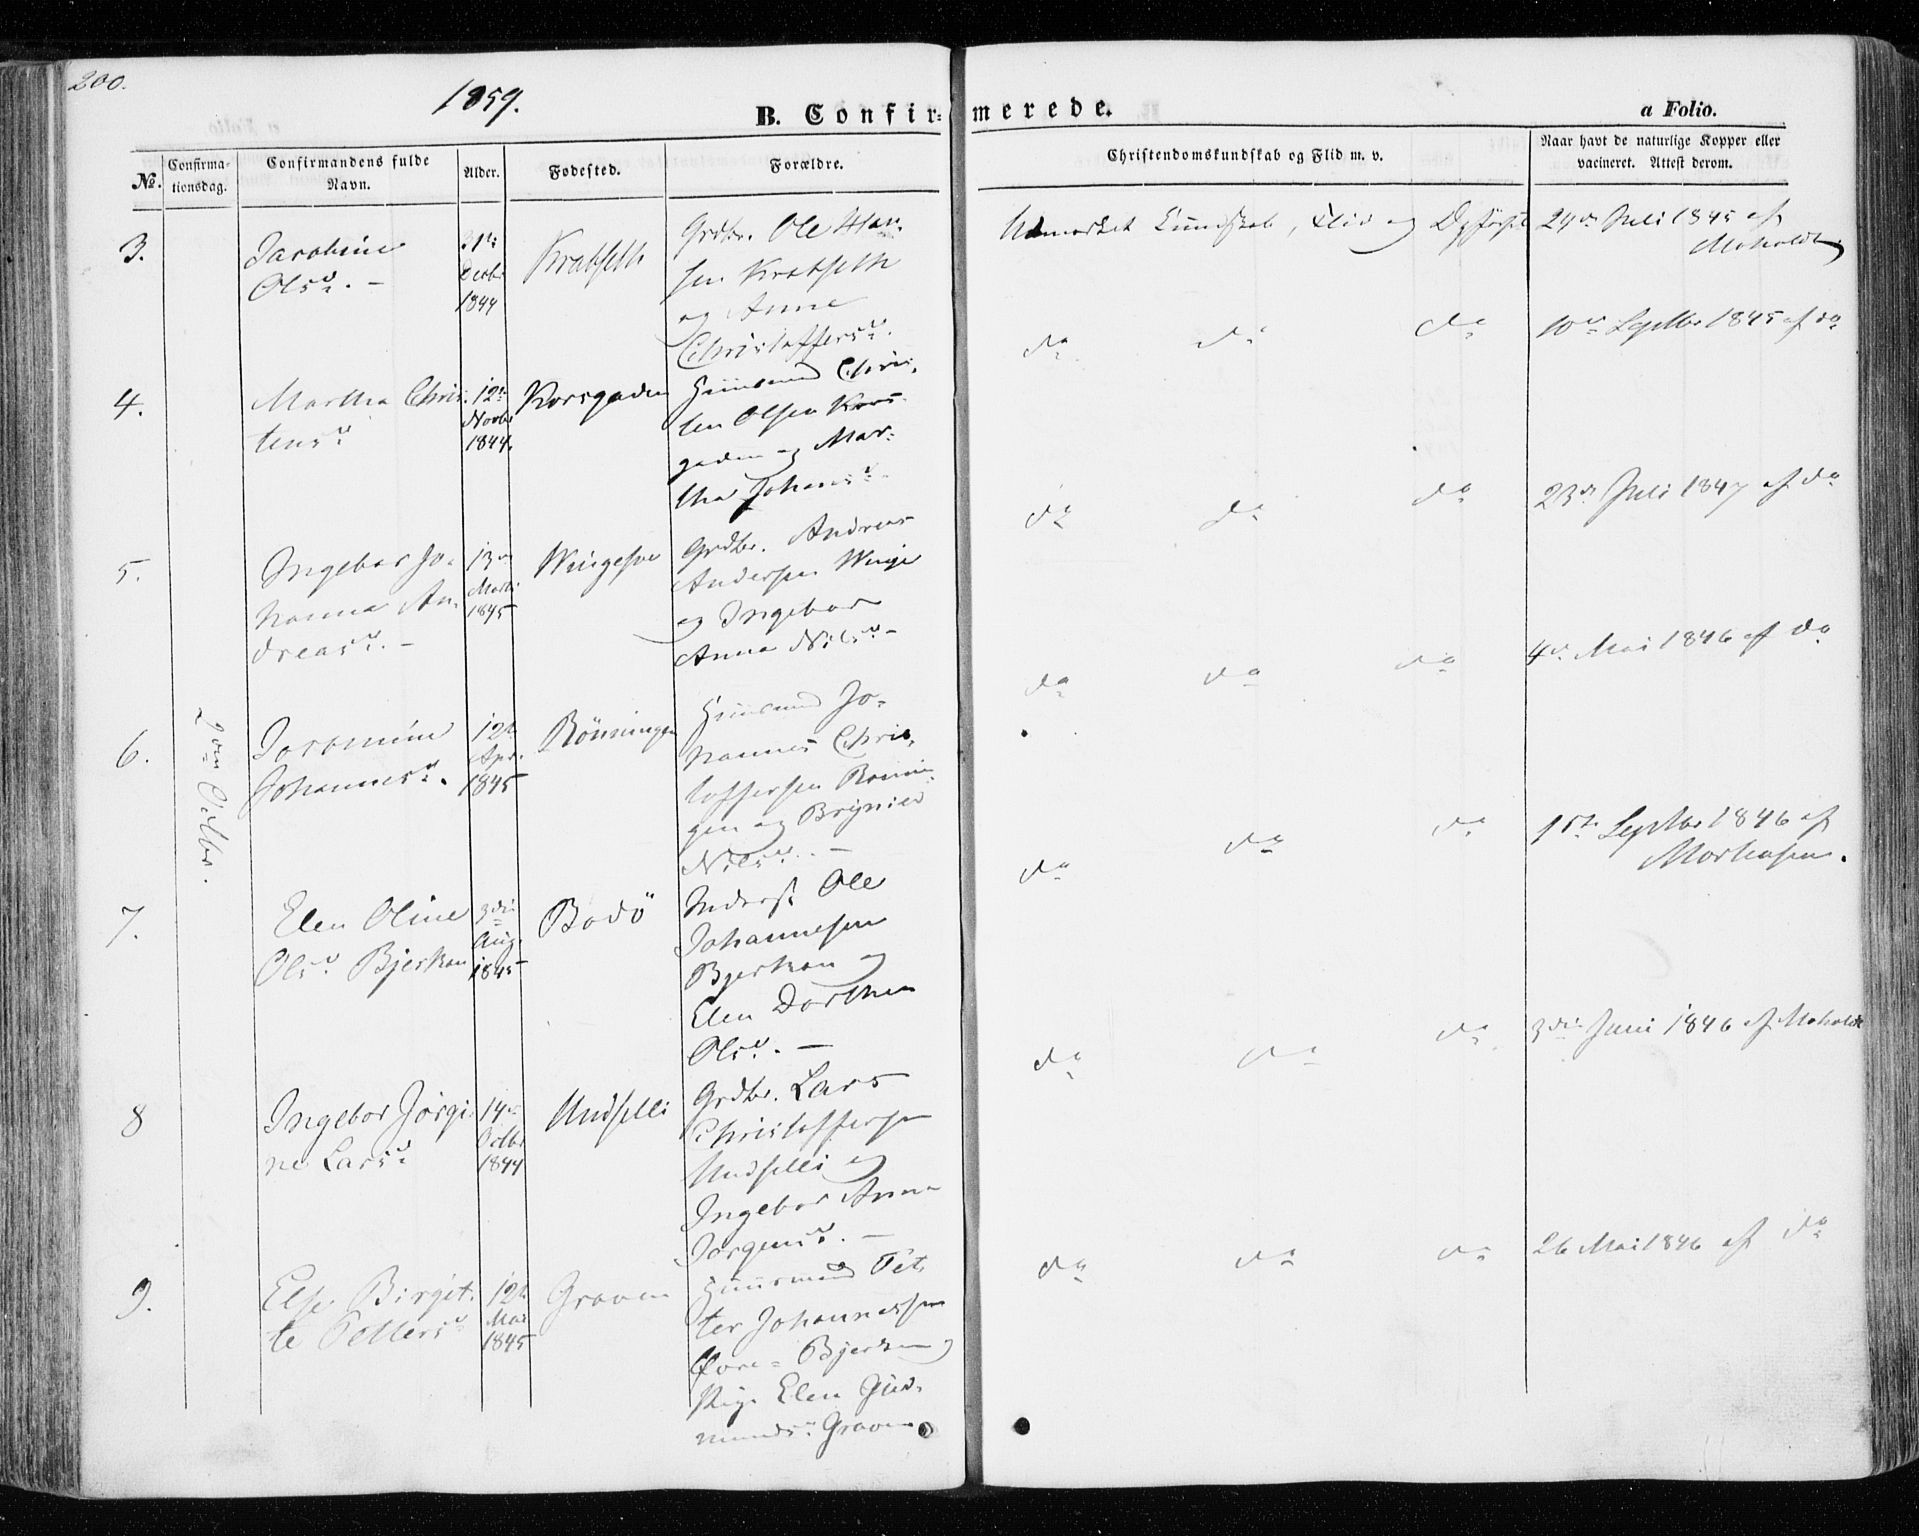 200.
1859.
B. Confirmerede.
a Folio.
No.
Confirma-
tionsdag.
Confirmandens fulde
Navn.
Alder.
Fødested.
Forældre.
Christendomskundskab og Flid m. v.
Naar havt de naturlige Kopper eller
vacineret. Attest derom.
2den Octbr.
3.
Jacobine
Olsd. -
31te
Decbr
1844
Krabseth
Grdbr. Ole Han-
sen Krabseth
og Anne
Christoffersd.
Udmærket Kundskab, Flid og
24de Juli 1845 af
Moholdt
4.
Martha Chris-
tensd.
12te
Novbr
1844.
Korsgaden
Huusmand Chris-
ten Olsen Kors-
gaden og Mar-
tha Johansd.
do do do
10de Septbr 1845 af do
5.
Ingebor Jo-
hanna An-
dreasd. -
13de
Marts
1845
Wingesve
Grdbr. Andreas
Andersen Winge
og Ingebor
Anna Nilsd. -
do do do
23de Juli 1847 af do
6.
Johannesd.
12te
Apr.
1845
Rönningen
Huusmand Jo-
hannes Chris-
toffersen Rönnin-
gen og
Nilsd. -
do do do
4de Mai 1846 af do
7.
Elen Oline
Olsd. Bjerkan
3die
Aug.
1845
Bodö
Inderst Ole
Johannesen
Bjerkan og
Elen Dorthea
Olsd. -
do do do
15de Septbr 1846 af
Mortensen.
8
Ingebor Jörgi-
ne Larsd.
14de
Octbr
1844
Undselli
Grdbr. Lars
Christoffersen
Undselli og
Ingebor Anna
Jörgensd. -
do do do
3die Juni 1846 af Moholdt
9.
Else Birgit-
te Pettersd.
12te
Mai
1845
Graven
Huusmand Pet-
ter Johannessen
Övre- Bjerkan og
Pige Elen Gud-
mundsd. Graven
do do do
26 Mai 1846 af do